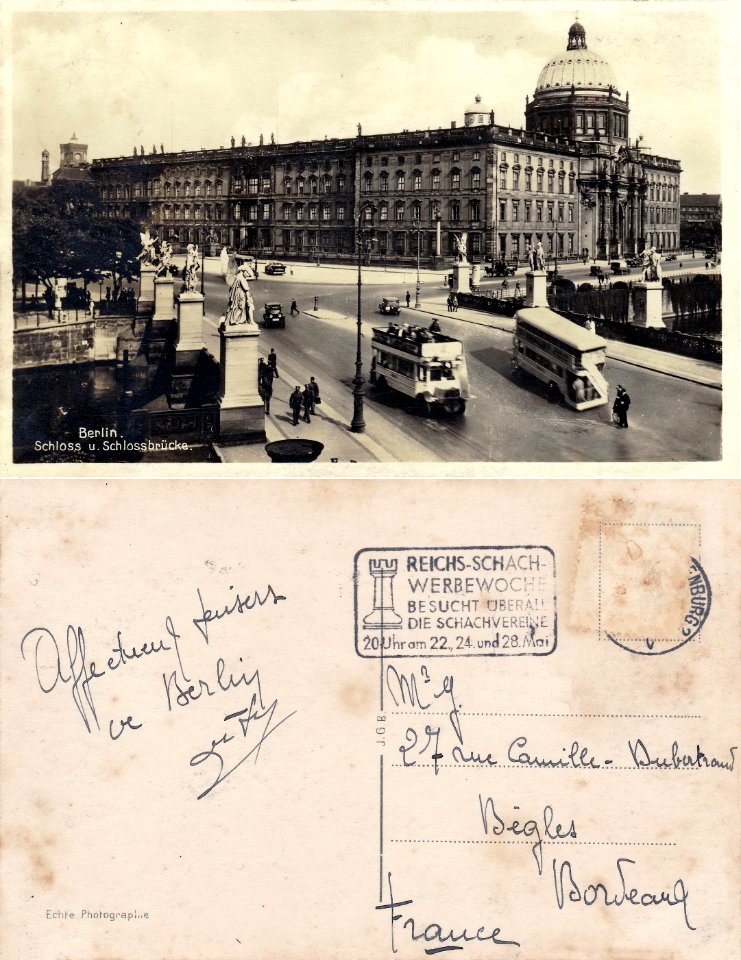 Berlin.
Schloss u. Schlossbrücke.
REICHS-SCHACH-
WERBEWOCHE
BESUCHT ÜBERALL
DIE SCHACHVEREINE
20 Uhr am 22., 24. und 28. Mai
NBURG 2
Affectueux
Berlin
J.G.B.
27 rue Camille-Dubertrand
Bègles
Bordeaux
France
Echte Photographie